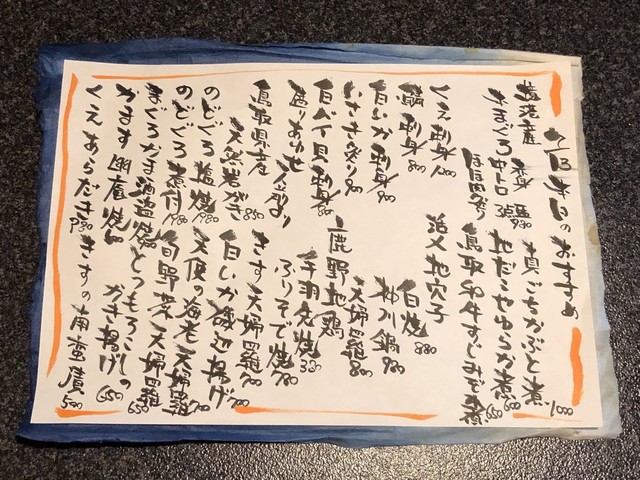 本日のおすすめ
境港産
生まぐろ 赤身 980
中トロ
ほほ肉炙り
くえ刺身 1200
鯛刺身 800
白いか刺身 900
いさき炙り 900
白バイ貝刺身
盛りあわせ
鳥取県産
天然岩がき 850
のどぐろ塩焼 1980
のどぐろ煮付 1980
まぐろかま酒盗焼
かます幽庵焼
くえあらだき
真ごちかぶと煮 1000
地だこやわらか煮 600
鳥取和牛すじみぞれ煮 650
活〆地穴子
白焼 980
柳川鍋 980
天婦羅 800
鹿野地鶏
手羽先焼 380
ふりそで焼 780
きす天婦羅 700
白いか磯辺揚げ 700
天使の海老天婦羅 700
旬野菜天婦羅 650
とうもろこしの
かき揚げ 650
きすの南蛮漬 500